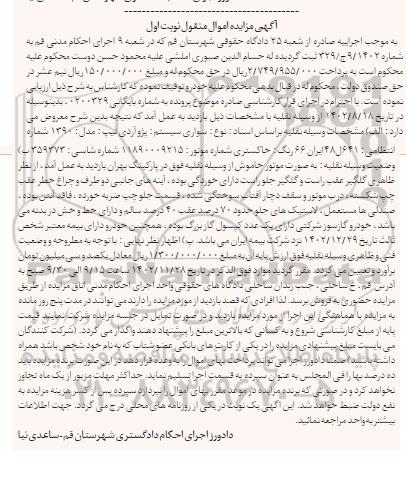 آگهی مزایده اموال منقول نوبت اول
به موجب اجراییه صادره از شعبه ۲۵ دادگاه حقوقی شهرستان قم که در شعبه ۹ اجرای احکام مدنی قم به
شماره ۹/۱۴۰۲ج/۳۲۹ ثبت گردیده له حسام الدین صبوری املشی علیه محمود حسن دوست محکوم علیه
محکوم است به پرداخت ۲/۷۴۹/۹۵۵/۰۰۰ریال در حق محکوم له و مبلغ ۱۵۰/۰۰۰/۰۰۰ریال نیم عشر در
حق صندوق دولت. محکوم له در قبال بدهی محکوم علیه خودرو توقیف نموده که کارشناس به شرح ذیل ارزیابی
نموده است. با احترام در اجرای قرار کارشناسی صادره موضوع پرونده به شماره بایگانی ۰۲۰۰۳۲۹ بدینوسیله
در تاریخ ۱۴۰۲/۸/۱۸ از وسیله نقلیه با مشخصات ذیل بازدید به عمل آمد که نتیجه بدین شرح معروض می
دارد: الف) مشخصات وسیله نقلیه براساس اسناد: نوع: سواری سیستم: پژو آردی تیپ: مدل: ۱۳۹۰ شماره
انتظامی: ۶۴۱ل۴۸ایران ۶۶ رنگ: خاکستری شماره موتور: ۱۱۸۹۰۰۰۹۲۱۵ شماره شاسی: ۳۵۹۳۷۳ ب)
وضعیت وسیله نقلیه: به صورت موتور خاموش از وسیله نقلیه فوق در پارکینگ بهران بازدید به عمل آمد، از نظر
ظاهری گلگیر عقب راست و گلگیر جلو راست دارای خوردگی بوده، آینه های جانبی دو طرف و چراغ خطر عقب
چپ شکسته، درب موتور و سقف دچار آفتاب سوختگی شده، قسمت جلو چپ ضربه خورده، فاقد آنتن بوده،
صندلی ها مستعمل، لاستیک های جلو حدود ۷۰ درصد عقب ۴۰ درصد سالم و دارای خط و خش در بدنه می
باشد، خودرو گازسوز شرکتی دارای یک عدد کپسول گاز بزرگ بوده، همچنین خودرو دارای بیمه معتبر شخص
ثالث تاریخ ۱۴۰۲/۱۲/۲۹ نزد شرکت بیمه ایران می باشد. پ) اظهار نظر نهایی: با توجه به مطروحه و وضعیت
فنی و ظاهری وسیله نقلیه فوق ارزش پایه آن به مبلغ ۱/۳۰۰/۰۰۰/۰۰۰ریال معادل یکصد و سی میلیون تومان
برآورد و تعیین می گردد. مقرر گردید موارد فوق الذکر در تاریخ ۱۴۰۲/۱۱/۲۸ ساعت ۹/۱۵ الی ۹/۳۰ صبح به
آدرس قم، خ ساحلی، جنب زندان ساحلی دادگاه های حقوقی واحد اجرای احکام مدنی اتاق مزایده از طریق
مزایده حضوری به فروش برسد. لذا افرادی که قصد بازدید از مورد مزایده را دارند می توانند در مدت پنج روز مانده
به مزایده با هماهنگی این اجرا از مورد مزایده بازدید و در صورت تمایل در جلسه مزایده شرکت نمایند قیمت
پایه از مبلغ کارشناسی شروع و به کسانی که بالاترین مبلغ را پیشنهاد دهند واگذار می گردد. (شرکت کنندگان
می بایست مبلغ پیشنهادی مزایده را در یکی از کارت های بانکی عضو شتاب که به نام خود شخص باشد همراه
داشته باشند) ضمنا دادورز اجرا می تواند پرداخت بهای اموال را به وعده قرار دهد در این صورت برنده مزایده باید
ده درصد بها را فی المجلس به عنوان سپرده به قسمت اجرا تسلیم نماید. حداکثر مهلت مزبور از یک ماه تجاوز
نخواهد کرد و در صورتی که برنده مزایده در موعد مقرر بهای اموال را نپردازد سپرده پس از کسر هزینه مزایده به
نفع دولت ضبط خواهد شد. این آگهی یک نوبت در یکی از روزنامه های محلی درج می گردد. جهت اطلاعات
بیشتر به واحد مراجعه نمائید.
دادورز اجرای احکام دادگستری شهرستان قم-ساعدی نیا